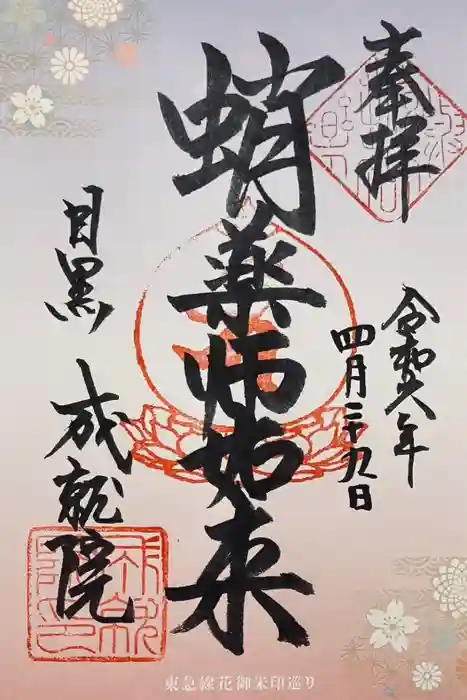 奉拝
令和八年
四月二十九日
蛸薬師如来
目黒 成就院
東急線花御朱印巡り